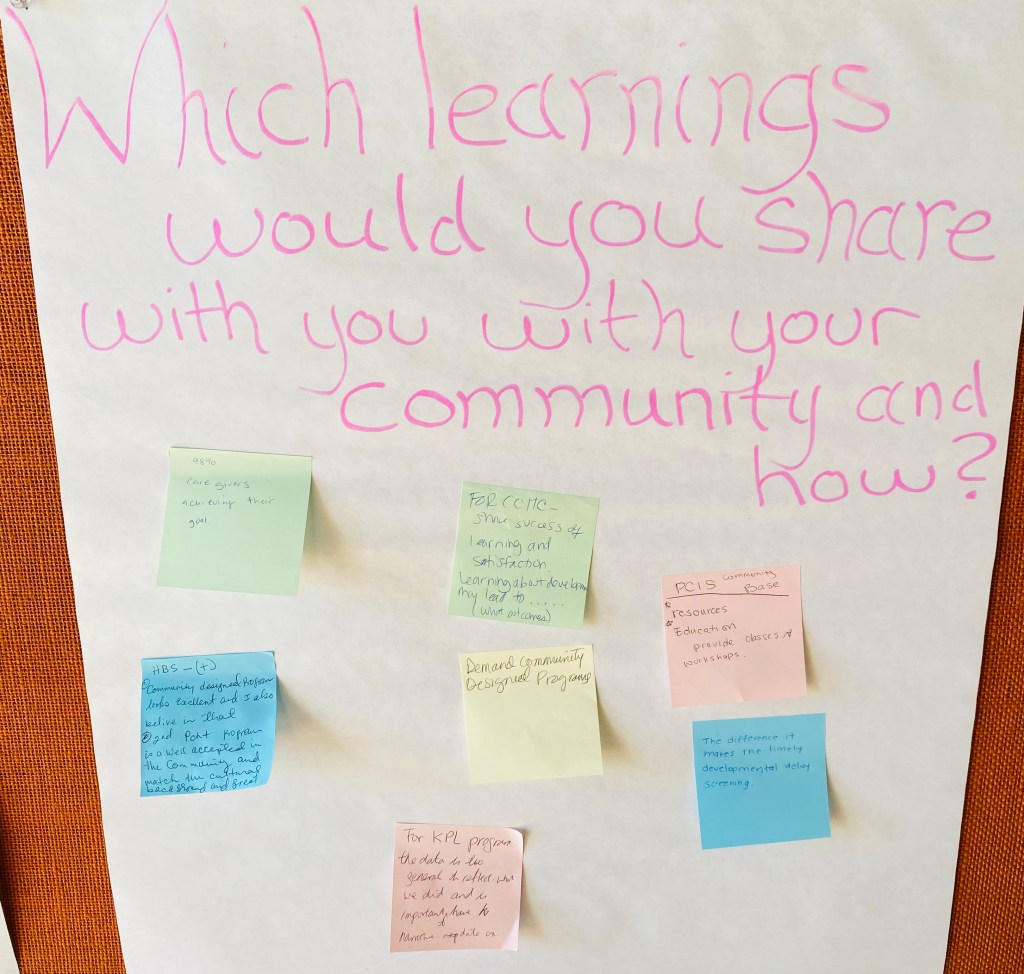 Which learnings
would you share
with you with your
community and
how?
98%
care givers
achieving their
goal
FOR CCMC -
share success of
learning and
satisfaction
Learning about develop
may lead to .....
(what outcomes)
PCIS community
Base
resources
Education
provide classes &
workshops.
HBS - (+)
① Community designed Program
looks Excellent and I also
belive in that
② 2nd Point Program
is a well accepted in
the Community and
match the cultural
background and great
DEMAND COMMUNITY
DESIGNED PROGRAMS
The difference it
makes the timely
developmental delay
screening.
For KPL program
the data is too
general to reflect what
we did and is
important, have to
data